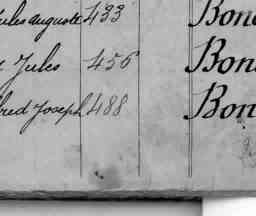 ules auguste 433 Bon
Jules 456 Bon
red Joseph 488 Bon